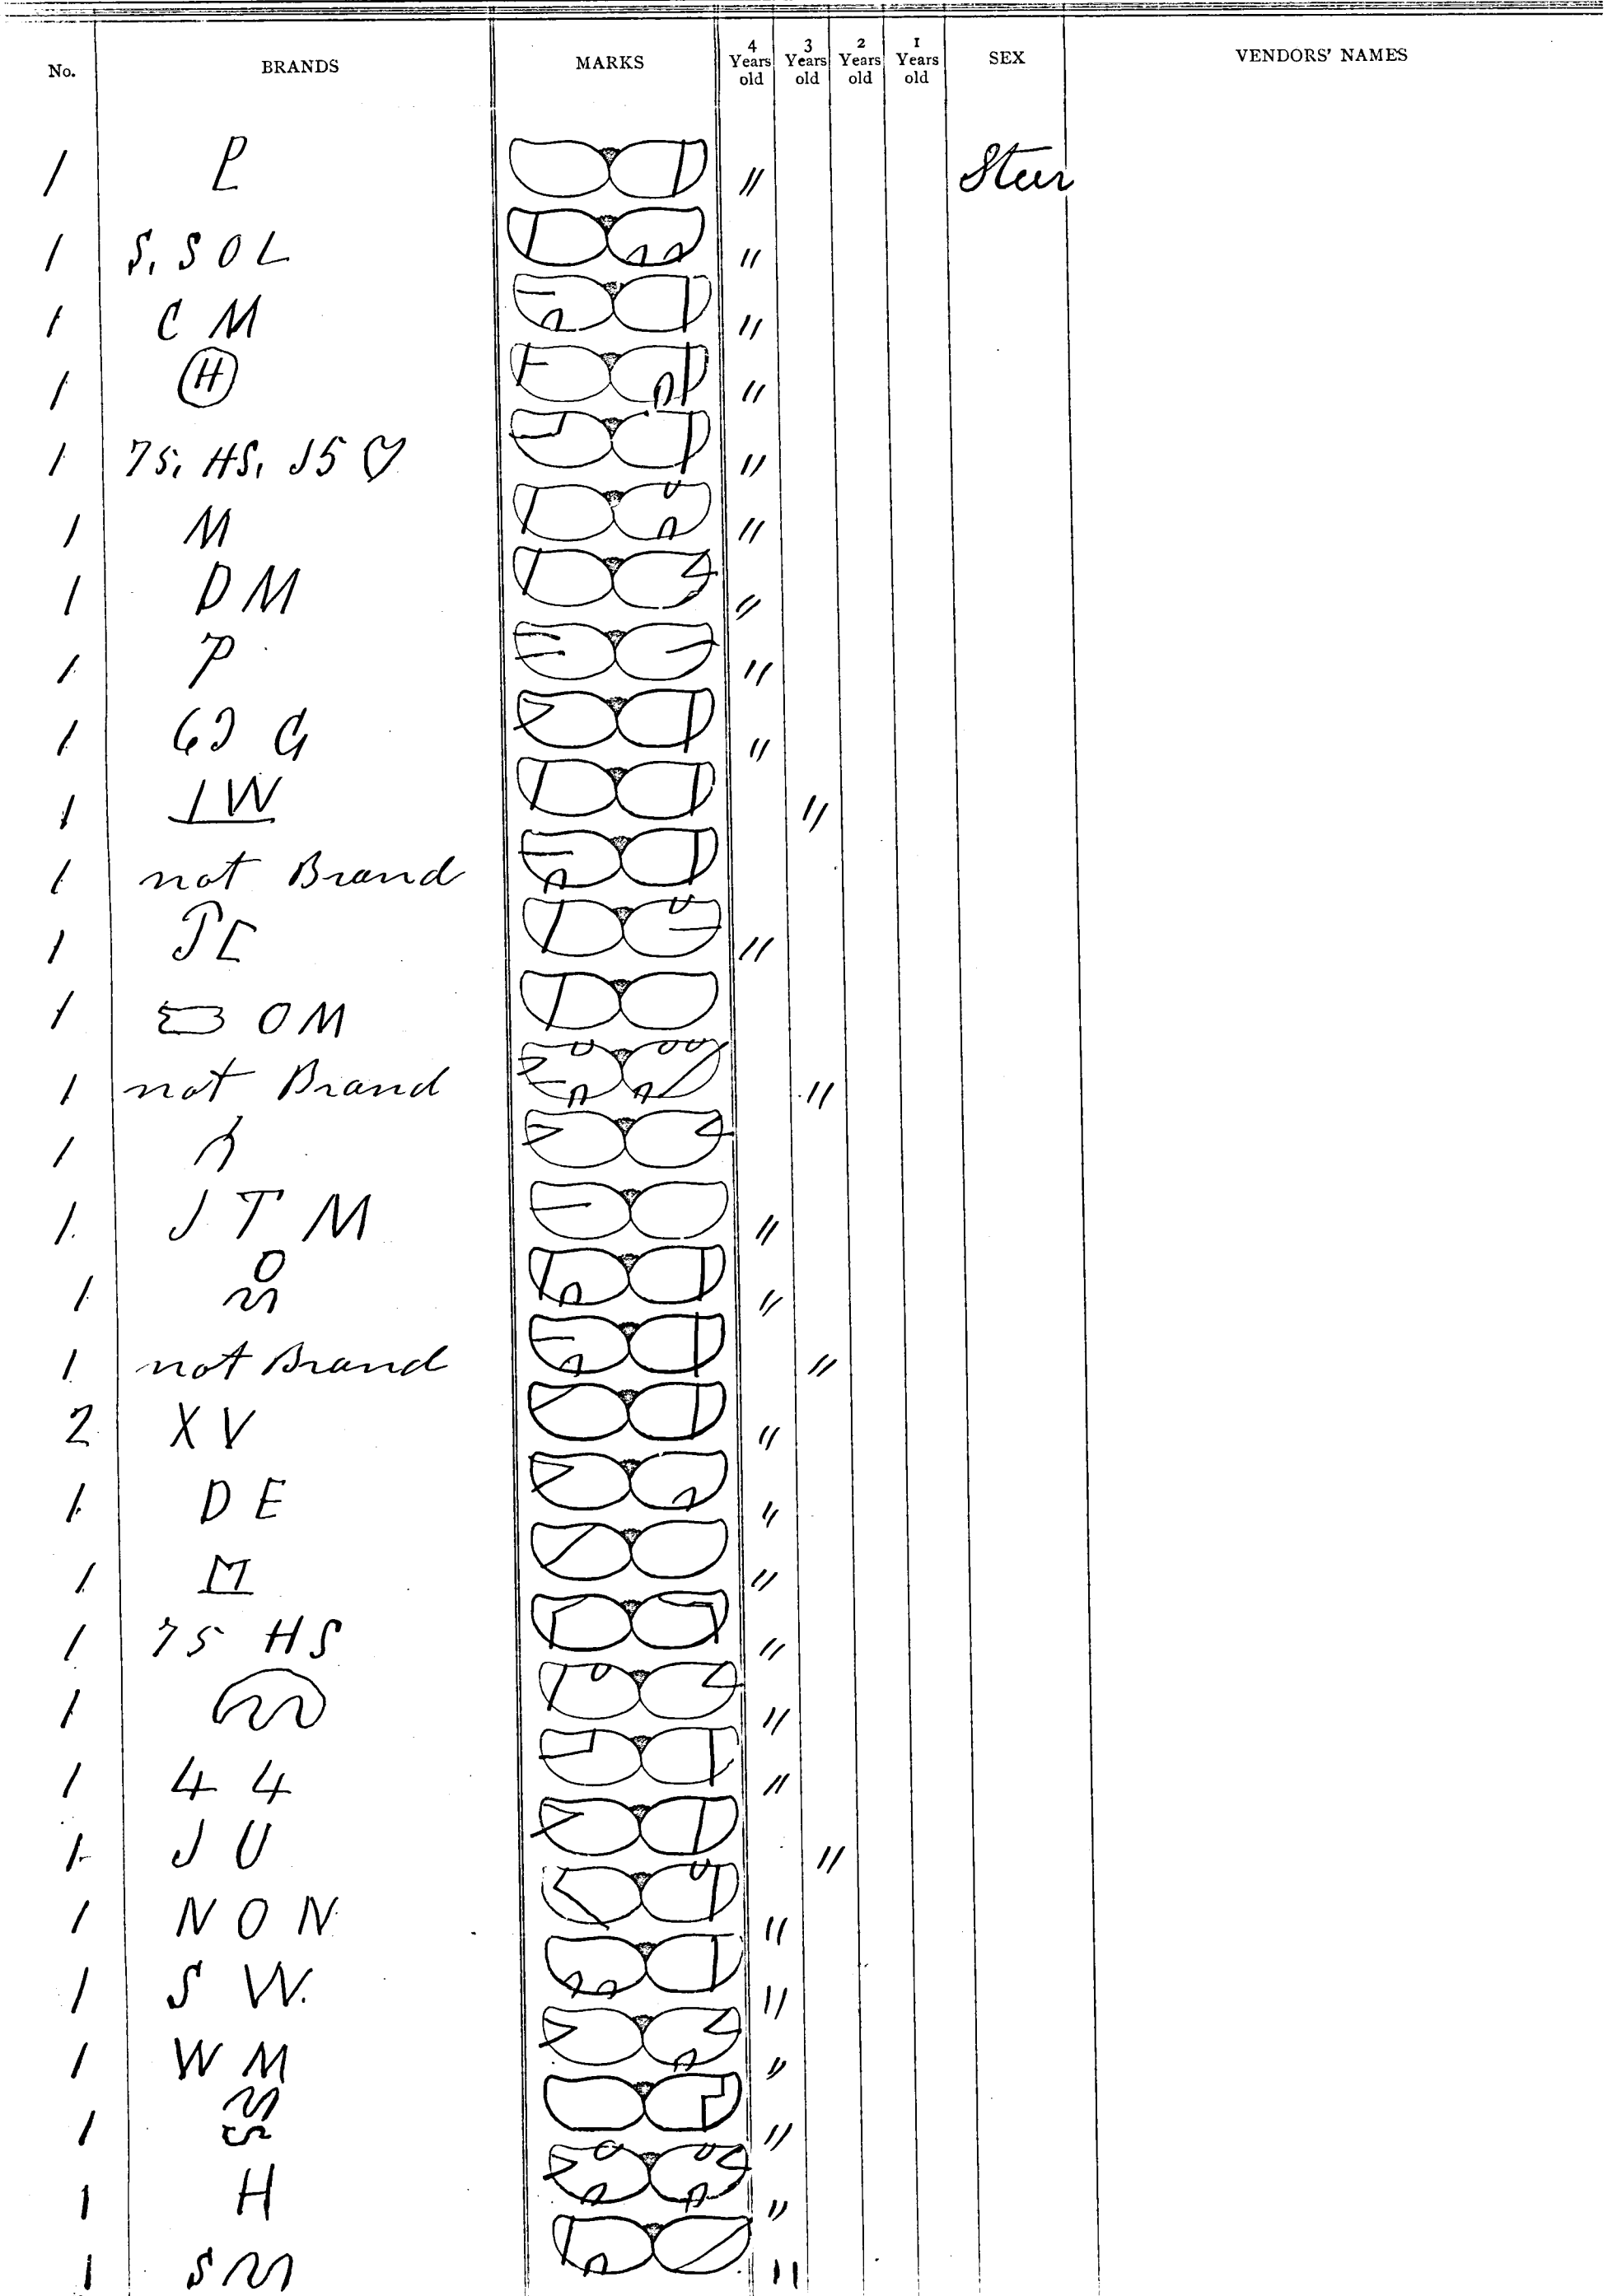 No. BRANDS MARKS 4 Years old 3 Years old 2 Years old 1 Years old SEX VENDORS' NAMES
1 P " Steer
1 S, SOL "
1 C M "
1 H "
1 75, HS, J5 ♡ "
1 M "
1 D M "
1 P "
1 G "
1 J W "
1 not Brand
1 "
1 O M
1 not Brand "
1
1. J T M "
1 O "
1 not Brand "
2 X V "
1 D E "
1 M "
1 75 HS "
1 "
1 4 4 "
1 J U "
1 N O N "
1 S W. "
1 W M "
1 "
1 H "
1 S M "